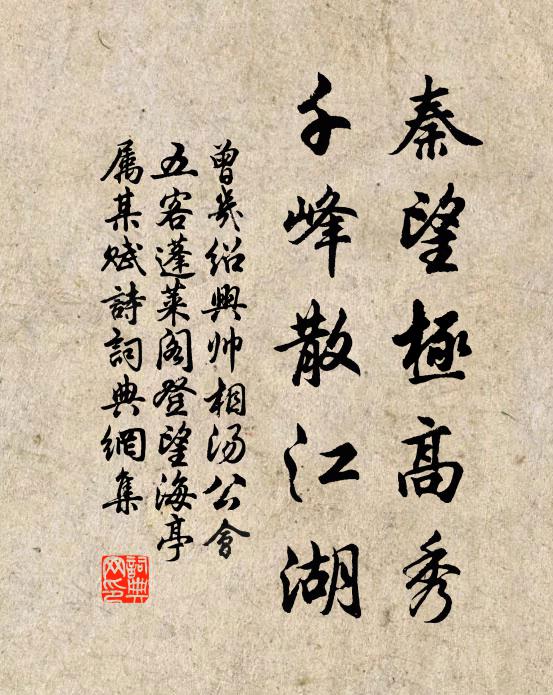 秦望極高秀
千峰散江湖
曾幾紹興帅相汤公會
五客蓬莱阁登望海亭
属某赋詩詞典網集
詞典
网印